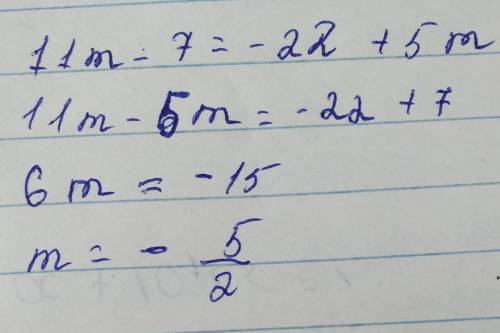 11m - 7 = -22 + 5m
11m - 5m = -22 + 7
6m = -15
m = - 5/2